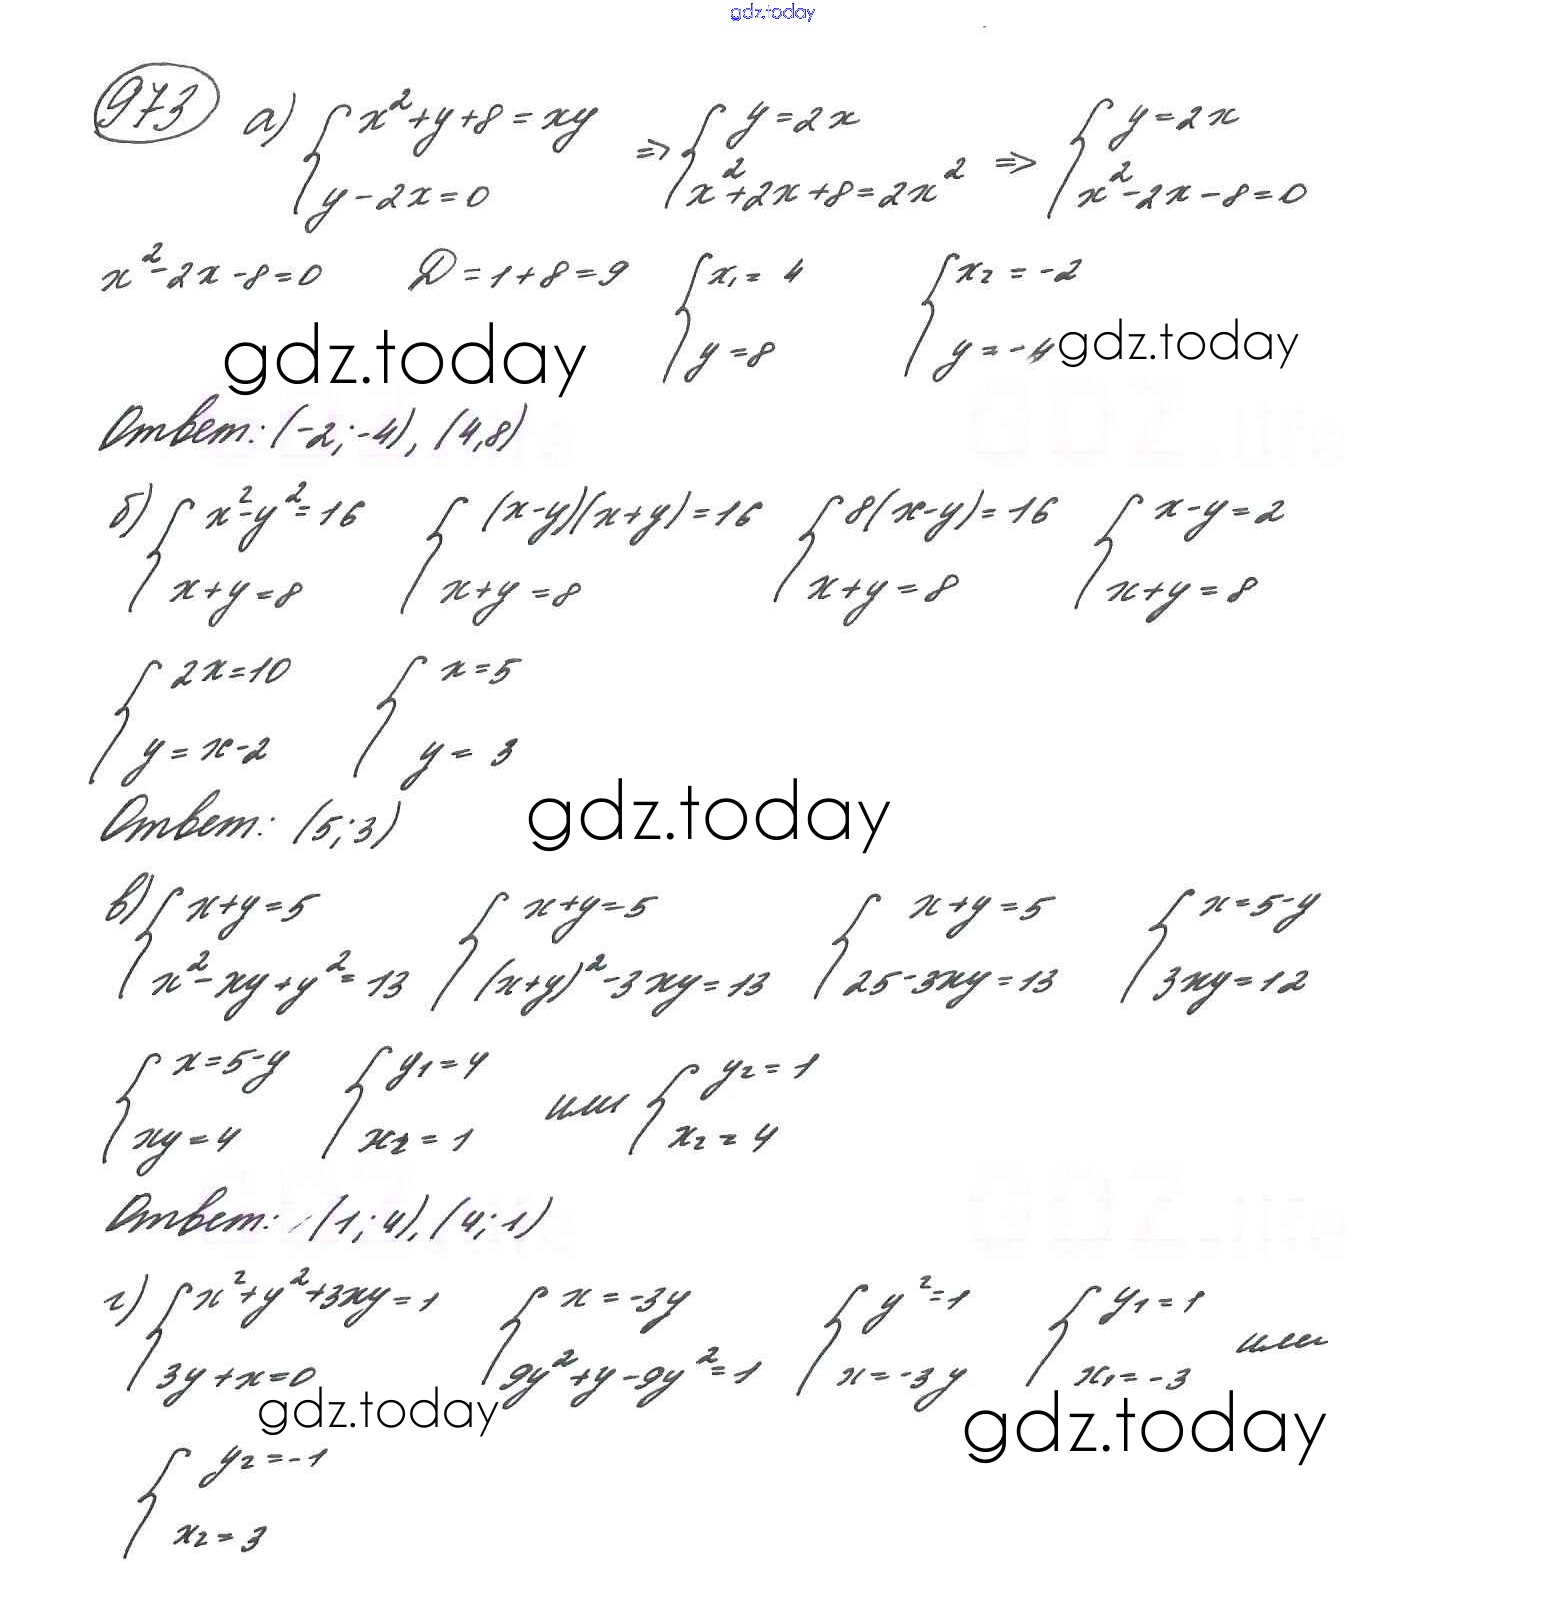 gdz.today
973 а) { x²+y+8=xy ; y-2x=0 => { y=2x ; x²+2x+8=2x² => { y=2x ; x²-2x-8=0
x²-2x-8=0 D=1+8=9 { x₁=4 ; y=8 { x₂=-2 ; y=-4
gdz.today gdz.today
Ответ: (-2;-4), (4,8)
GDZ.life GDZ.life
б) { x²-y²=16 ; x+y=8 { (x-y)(x+y)=16 ; x+y=8 { 8(x-y)=16 ; x+y=8 { x-y=2 ; x+y=8
{ 2x=10 ; y=x-2 { x=5 ; y=3
Ответ: (5;3)
gdz.today
в) { x+y=5 ; x²-xy+y²=13 { x+y=5 ; (x+y)²-3xy=13 { x+y=5 ; 25-3xy=13 { x=5-y ; 3xy=12
{ x=5-y ; xy=4 { y₁=4 ; x₂=1 или { y₂=1 ; x₂=4
Ответ: (1;4), (4;1)
GDZ.life GDZ.life
г) { x²+y²+3xy=1 ; 3y+x=0 { x=-3y ; 9y²+y-9y²=1 { y²=1 ; x=-3y { y₁=1 ; x₁=-3 или
gdz.today gdz.today
{ y₂=-1 ; x₂=3